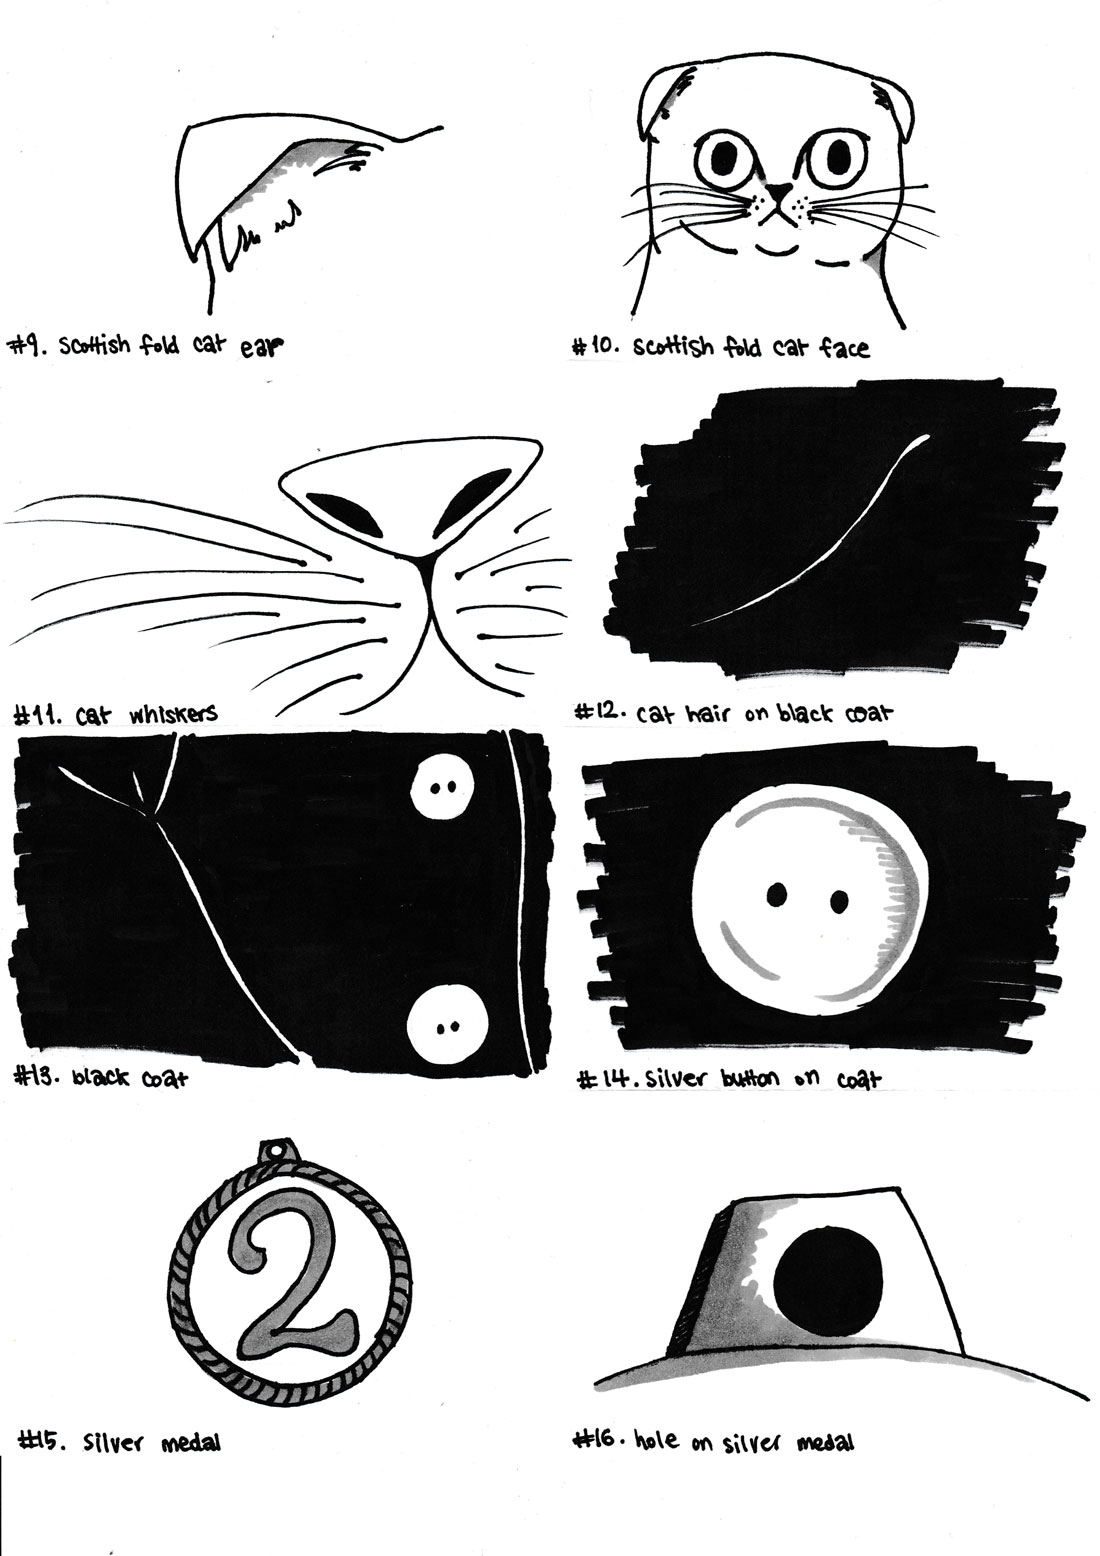 #9. scottish fold cat ear
#10. scottish fold cat face
#11. cat whiskers
#12. cat hair on black coat
#13. black coat
#14. silver button on coat
2
#15. silver medal
#16. hole on silver medal